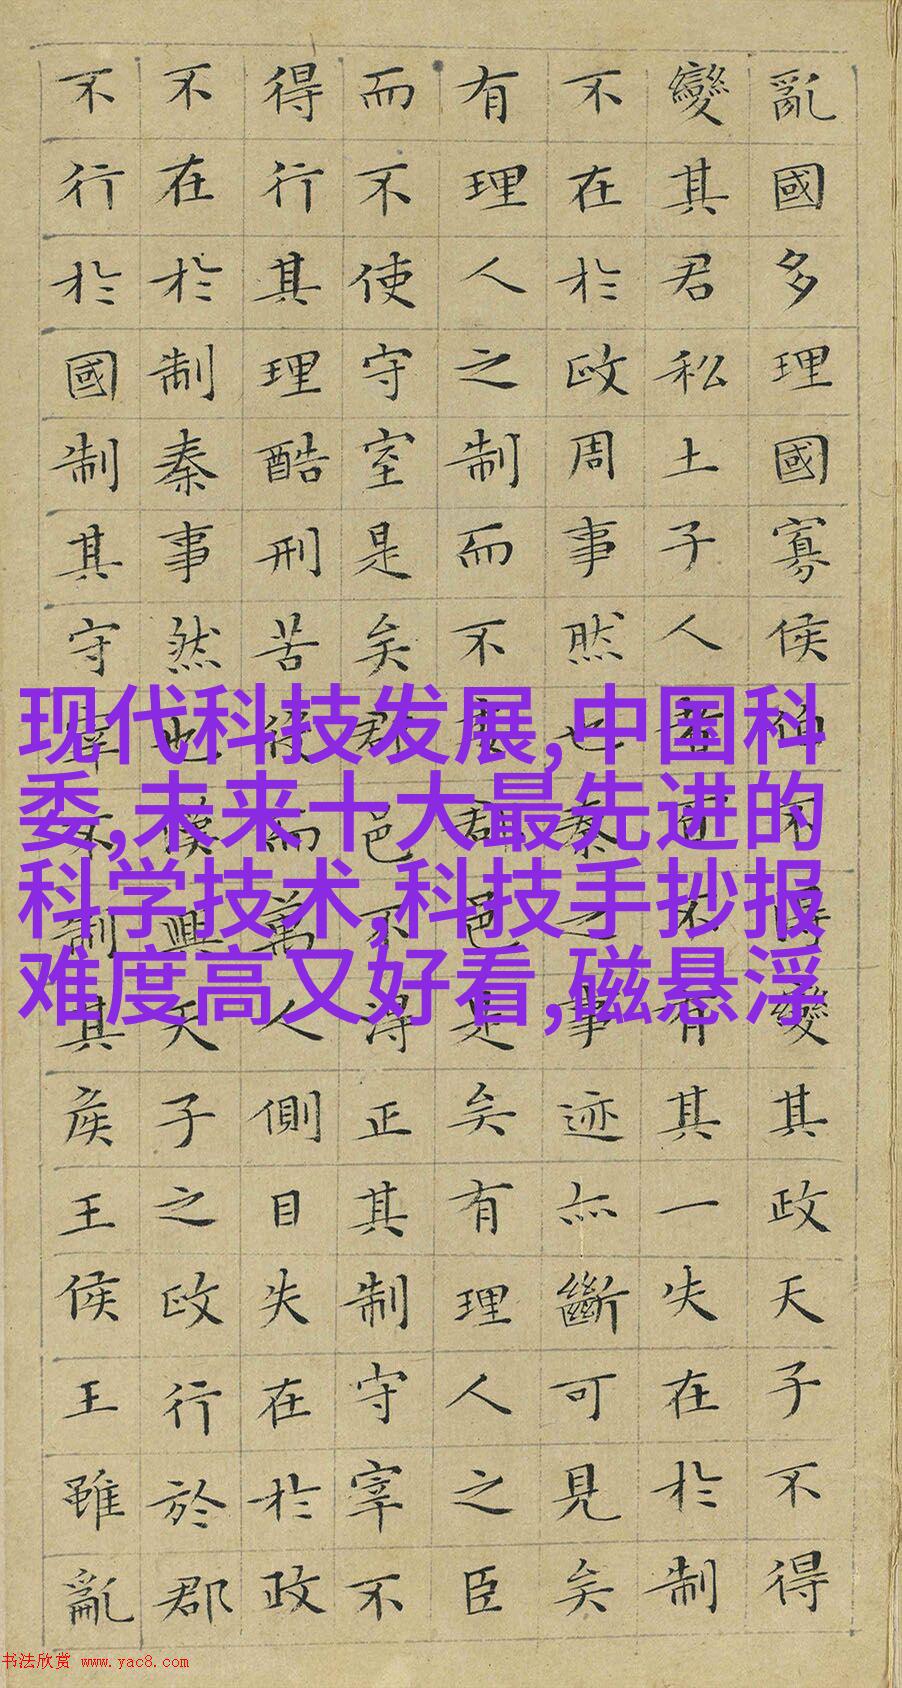 亂國多理國寡侯伯不得變其政天子不得
變其君私土子人者百不有其一失在於制
不在於政周事然也秦之事迹亦斷可見矣
有理人之制而不委郡邑是矣有理人之臣
而不使守宰是矣郡邑不得正其制守宰不
得行其理酷刑苦役而萬人側目失在於政
不在於制秦事然也漢興天子之政行於郡
不行於國制其守宰不制其侯王侯王雖亂
现代科技发展,中国科
委,未来十大最先进的
科学技术,科技手抄报
难度高又好看,磁悬浮
书法欣赏 www.yac8.com